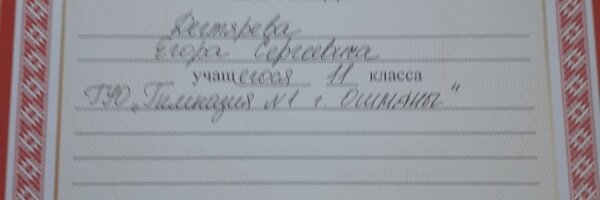 Дегтярева
Егора Сергеевича
учащегося 11 класса
ГУО „Гимназия №1 г. Ошмяны"